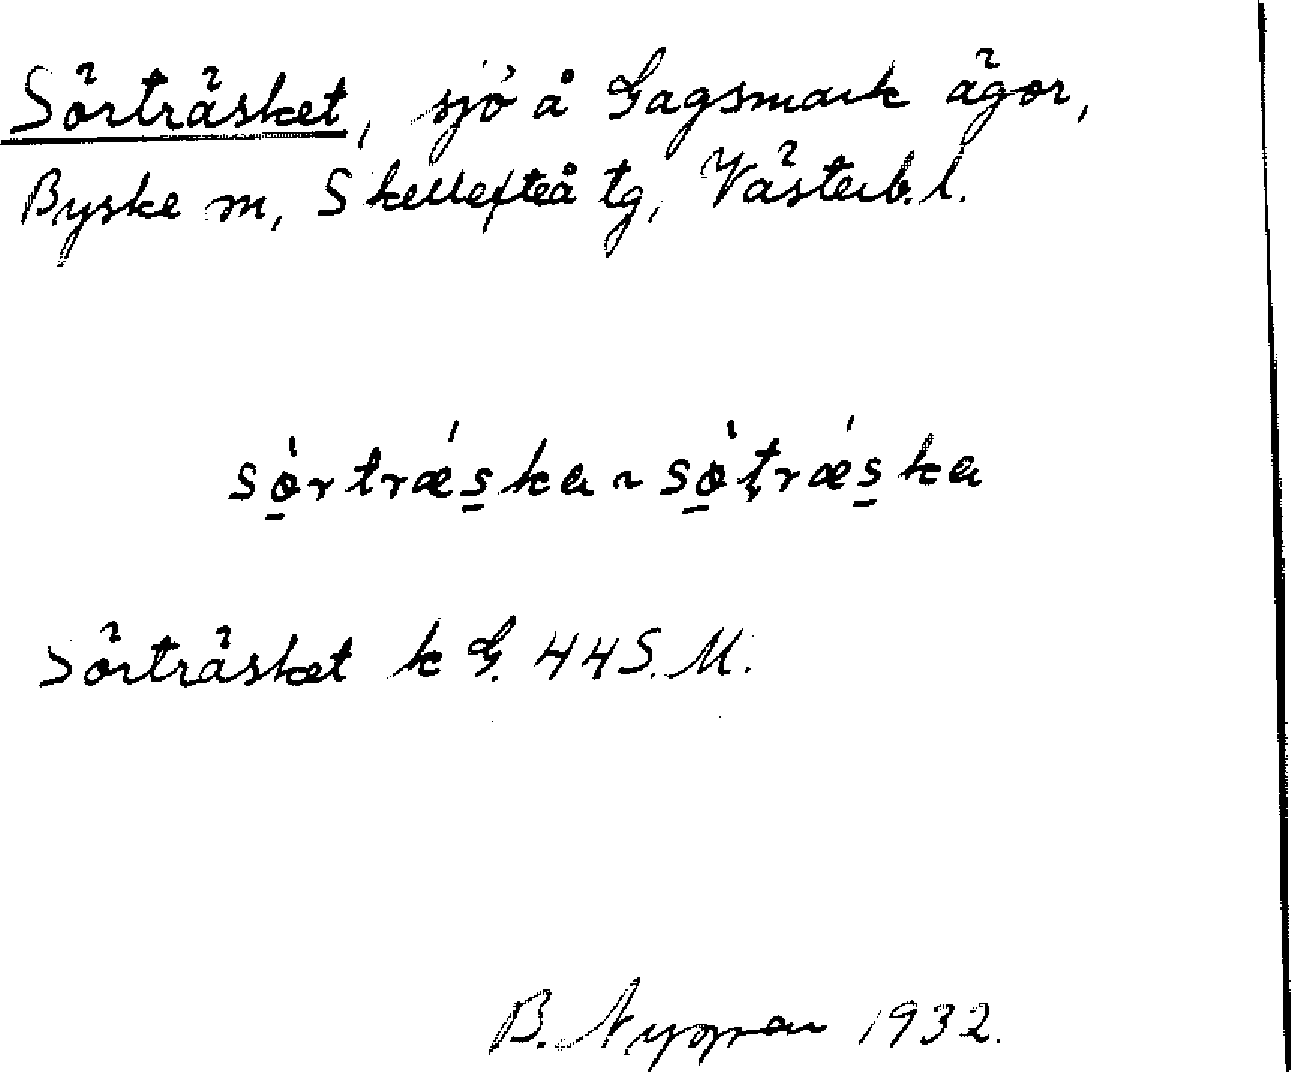 Sörträsket, sjö å Gagsmark ägor,
Byske sn, Skellefteå tg, Västerb. l.
sö̀rtrǽska ~ sö̀ʈrǽska
Sörträsket k G. 44 S. M.
B. Nyman 1932.